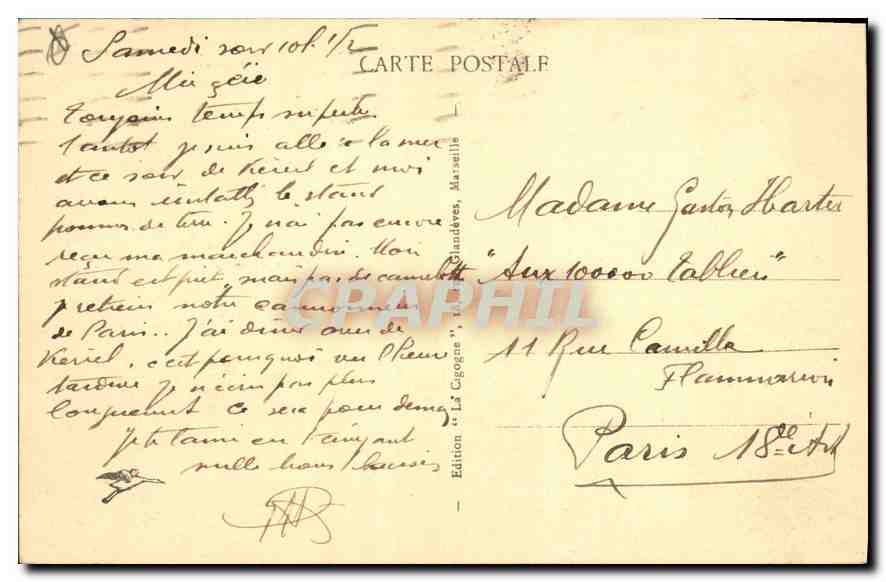 Samedi soir 10h 1/2
CARTE POSTALE
toujours temps superbe
tantot je suis allé à la mer
et ce soir de Kériel et moi
avons le stand
pommes de terre. Je n'ai pas encore
reçu ma marchandise. Mon
stand est prêt, mais pas de camelotte
notre camionneur
de Paris.. J'ai diner avec de
Kériel, c'est pourquoi vu l'heure
tardive je n'écris pas plus
longuement ce sera pour demain
Je te
mille bons baisers
Edition "La Cigogne", Glandèves, Marseille
Madame Gaston Harter
"Aux 100000 Tabliers"
11 Rue Camille
Flammarion
Paris 18e Art
CPAPHIL